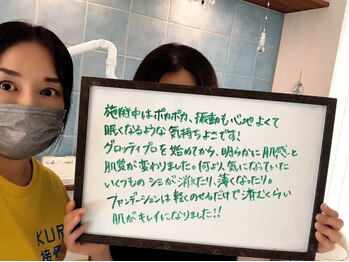 施術中はポカポカ、振動も心地よくて
眠くなるような気持ちよさです!
グロッティプロを始めてから、明らかに肌感と
肌質が変わりました。何より気になっていた
いくつものシミが消えたり、薄くなったり。
ファンデーションは軽くのせるだけで済むくらい
肌がキレイになりました!!
KUR